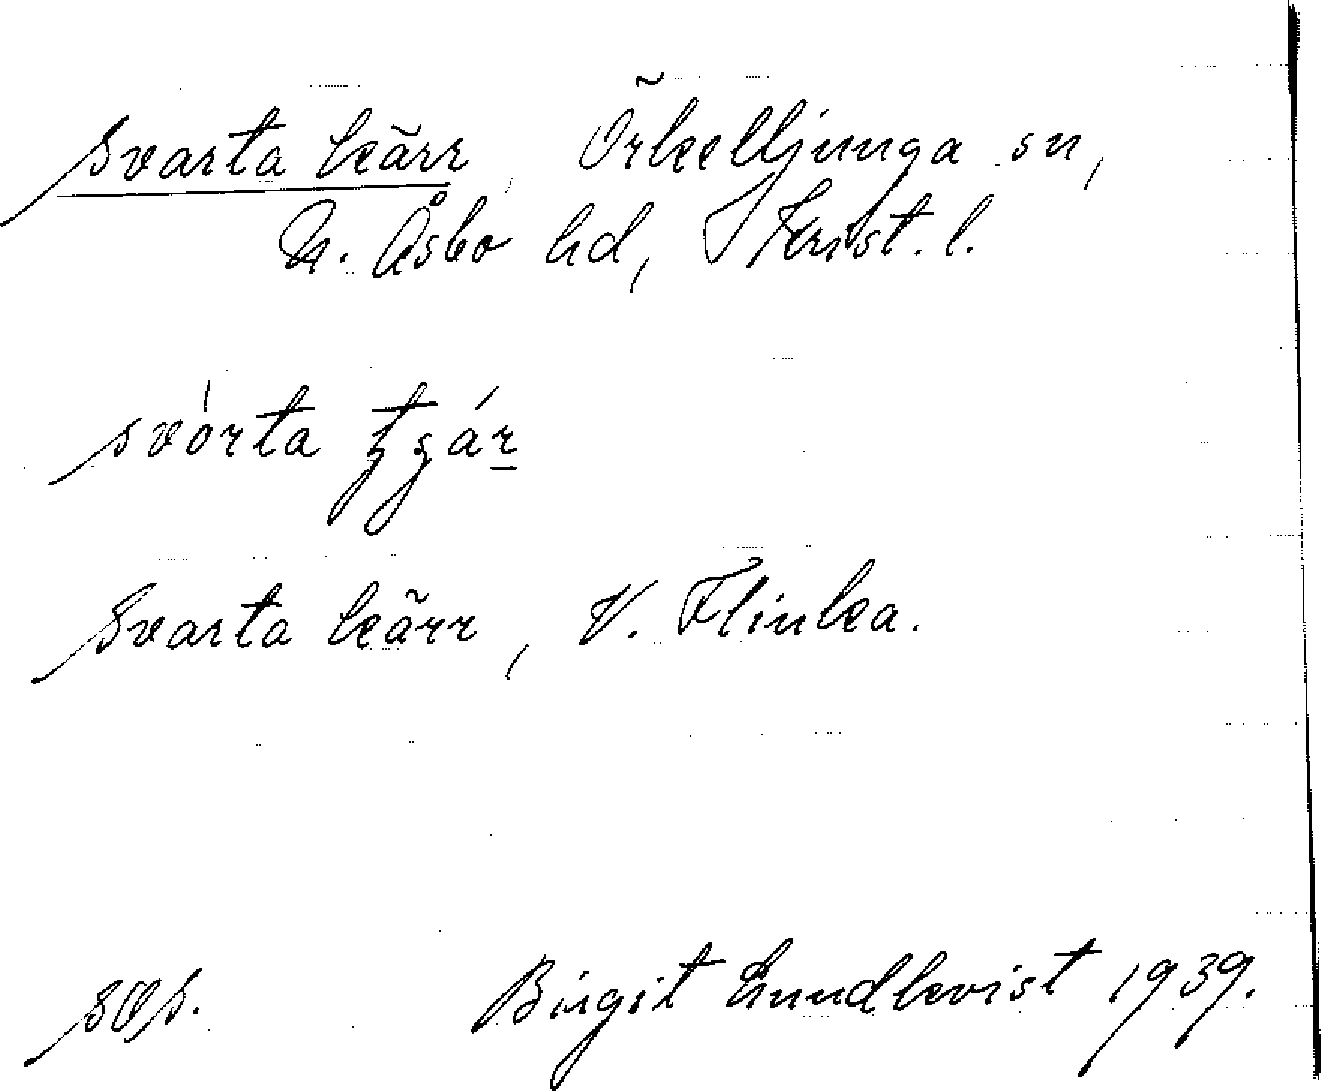 Svarta kärr, Örkelljunga sn,
N. Åsbo hd, Krist. l.
svórta
Svarta kärr, V. Flinka.
sos. Birgit Lundkvist 1939.